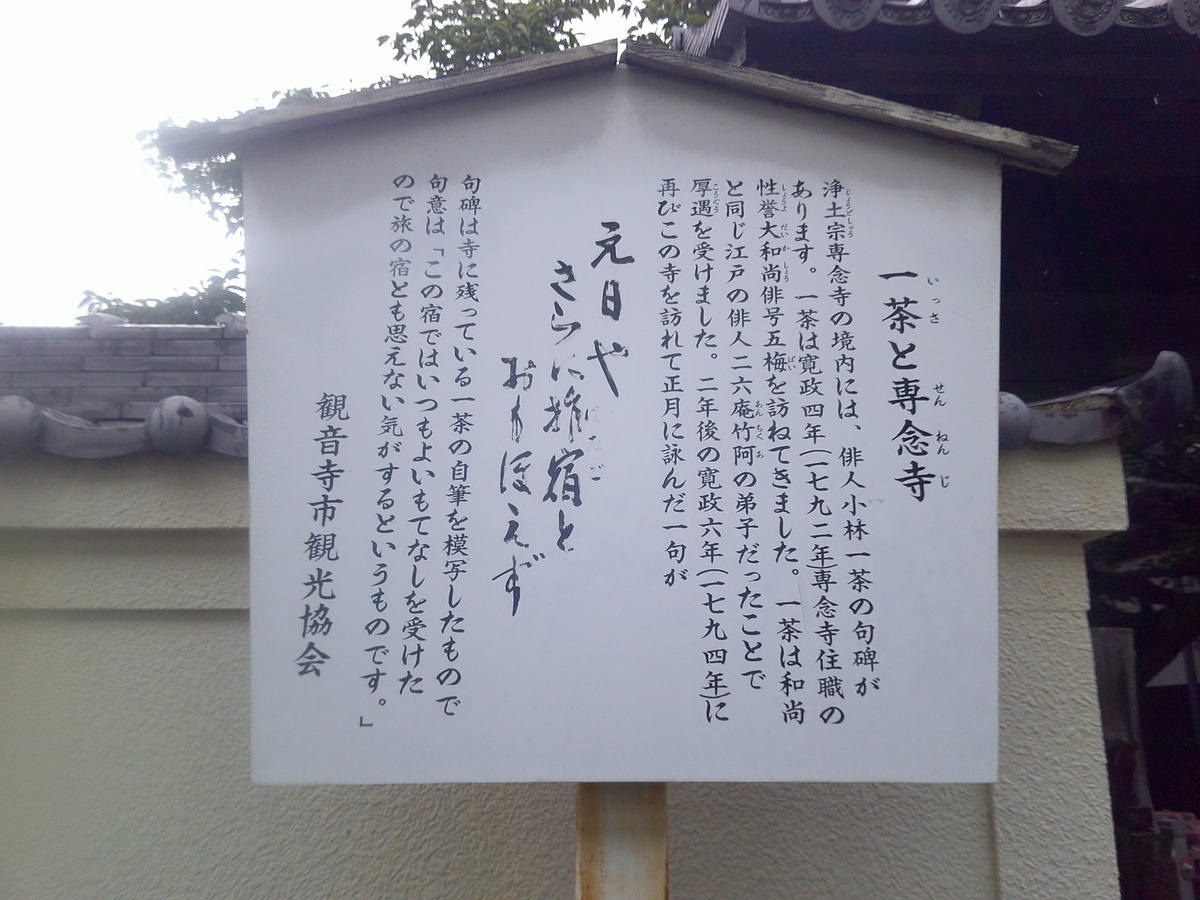 一茶と専念寺
浄土宗専念寺の境内には、俳人小林一茶の句碑が
あります。一茶は寛政四年(一七九二年)専念寺住職の
性誉大和尚俳号五梅を訪ねてきました。一茶は和尚
と同じ江戸の俳人二六庵竹阿の弟子だったことで
厚遇を受けました。二年後の寛政六年(一七九四年)に
再びこの寺を訪れて正月に詠んだ一句が
元日や
さらに旅宿と
おもほえず
句碑は寺に残っている一茶の自筆を模写したもので
句意は「この宿ではいつもよいもてなしを受けた
ので旅の宿とも思えない気がするというものです。」
観音寺市観光協会